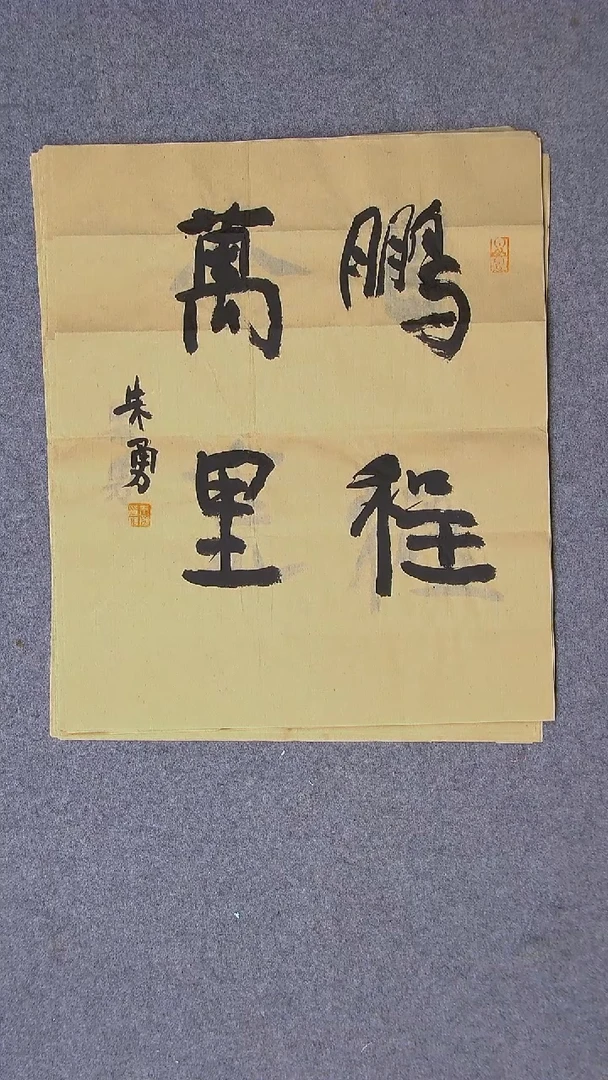 鹏程
萬里
朱勇